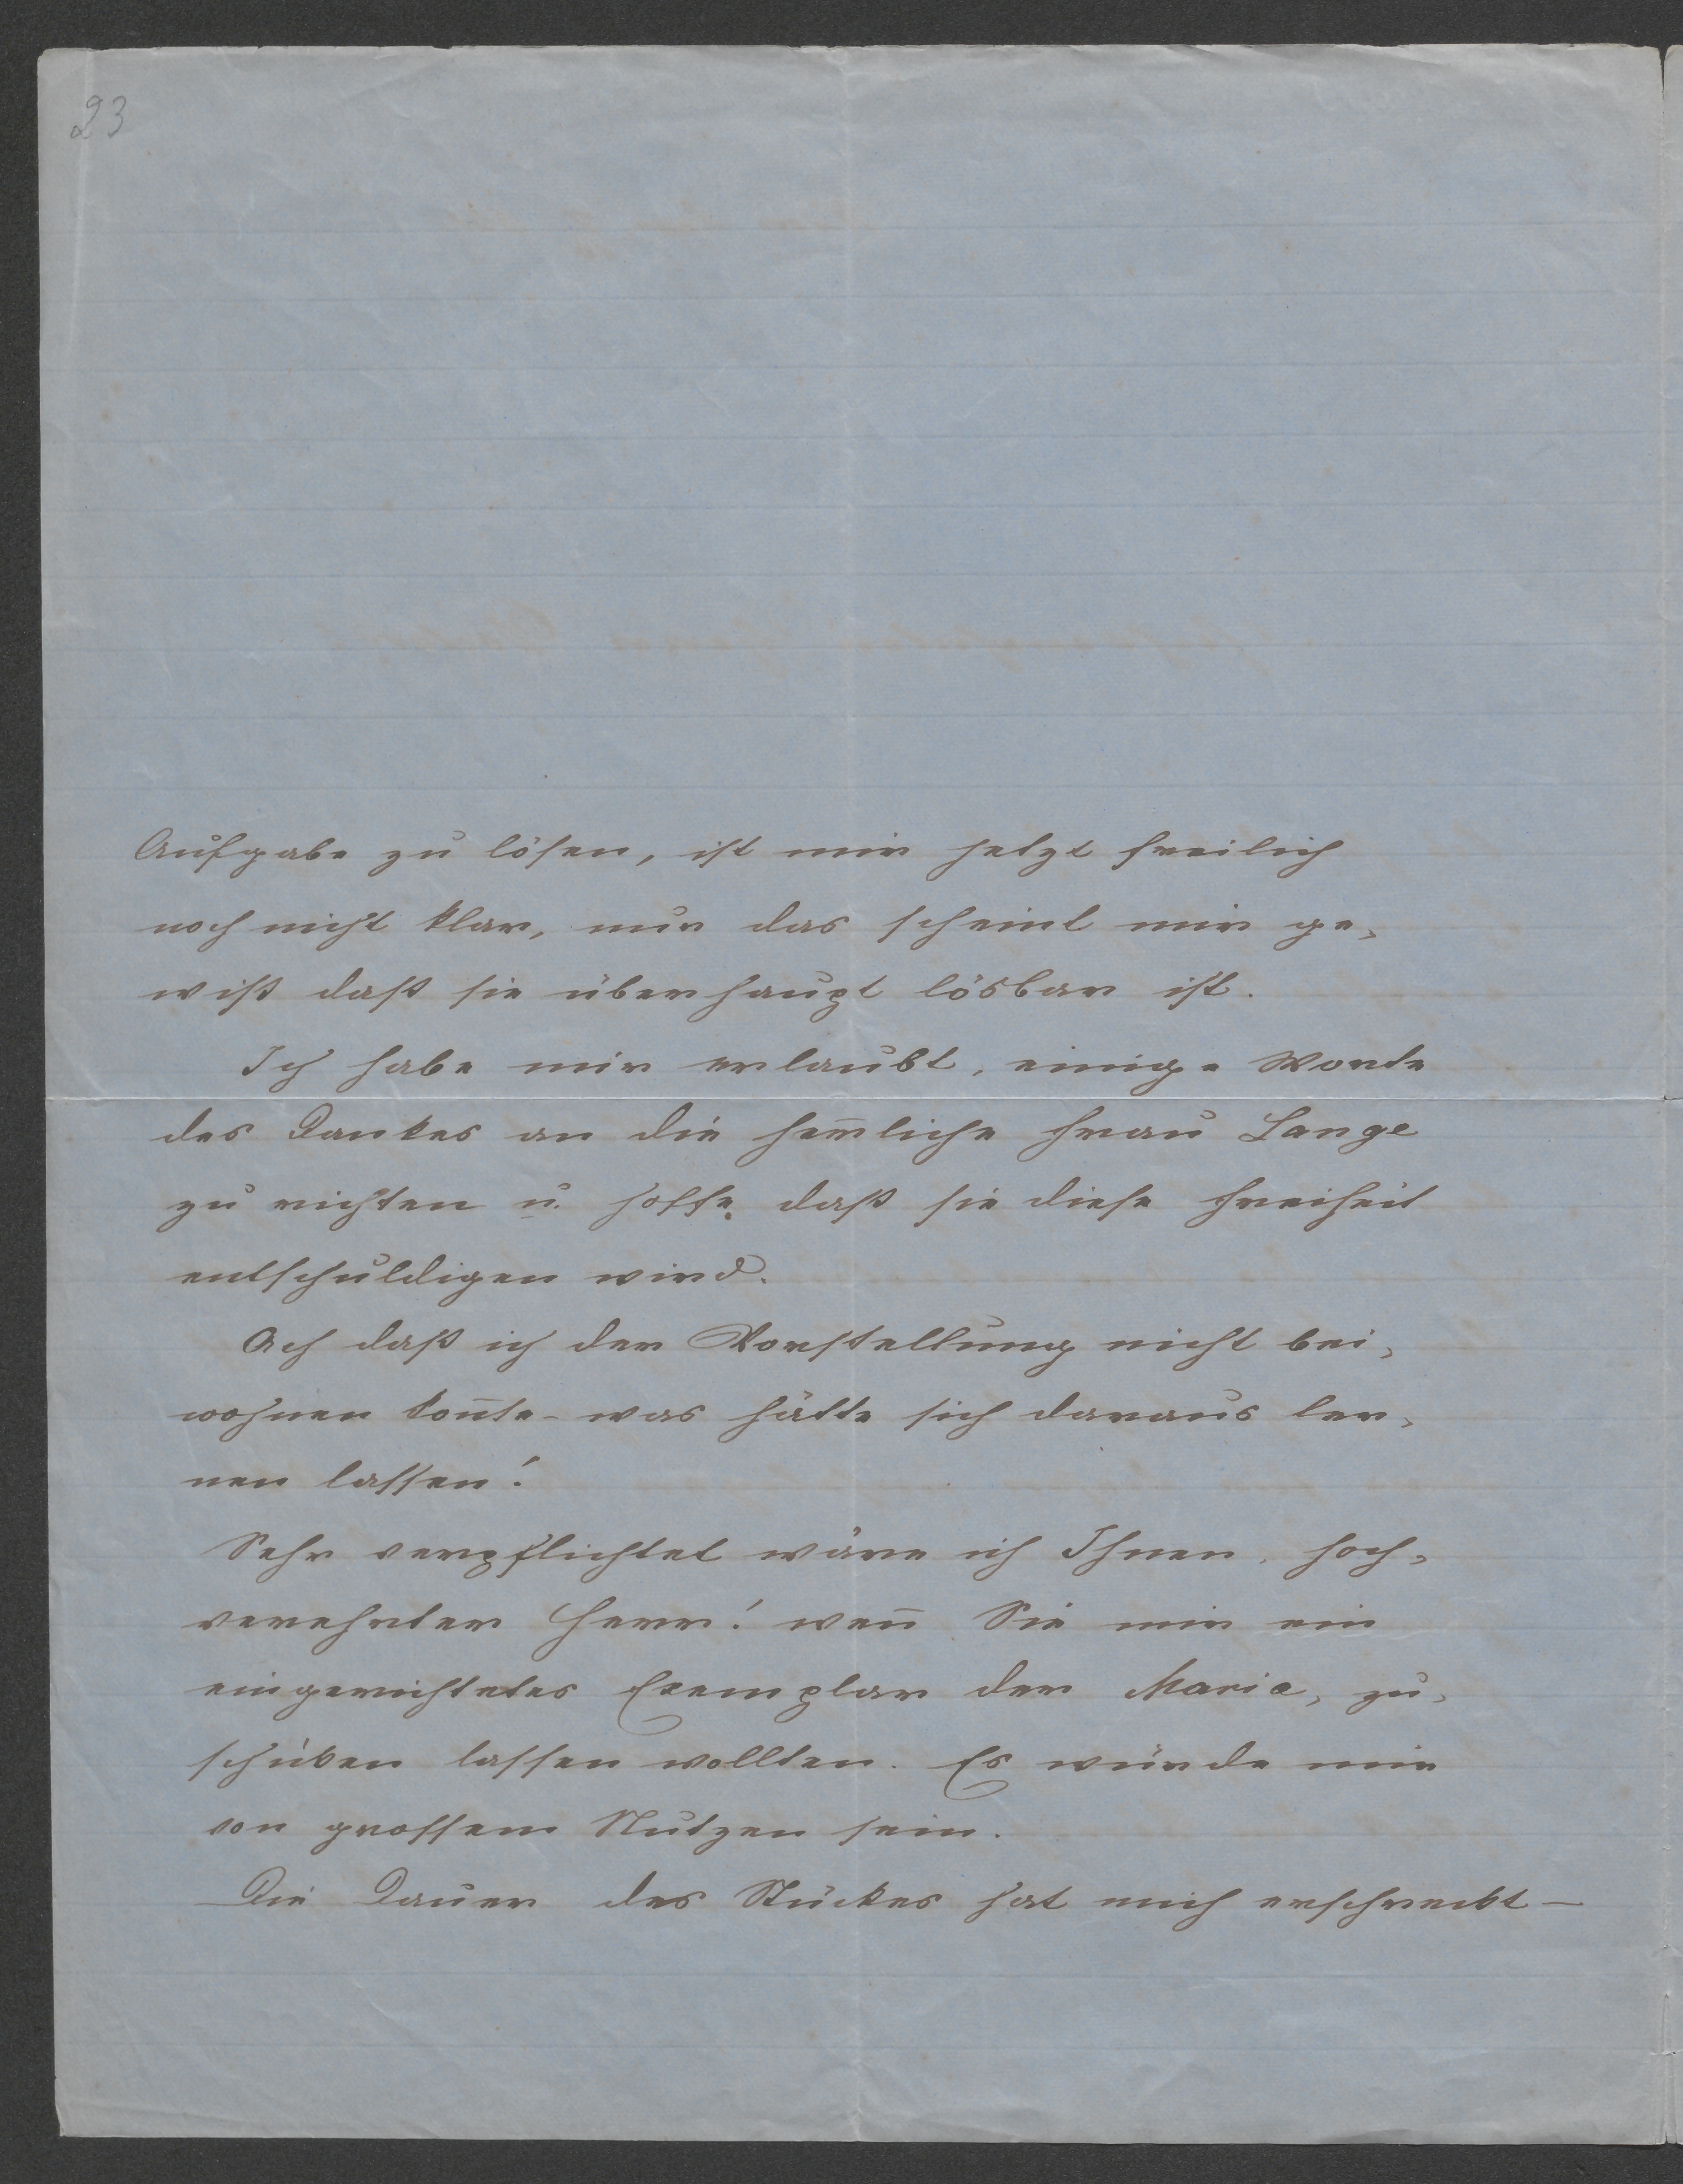 23
Aufgabe zu lösen, ist mir jetzt freilich
noch nicht klar, nur das scheint mir ge-
wiß daß sie überhaupt lösbar ist.
Ich habe mir erlaubt, einige Worte
des Dankes an die herrliche Frau Lange
zu richten u. hoffe, daß sie diese Freiheit
entschuldigen wird.
Ach daß ich der Vorstellung nicht bei-
wohnen kon̄te – was hätte sich daraus ler-
nen lassen!
Sehr verpflichtet wäre ich Ihnen, hoch-
verehrter Herr! wen̄ Sie mir ein
eingerichtetes Exemplar der Maria, zu-
schicken lassen wollten. Es würde mir
von grossem Nutzen sein.
Die Dauer des Stückes hat mich erschreckt –